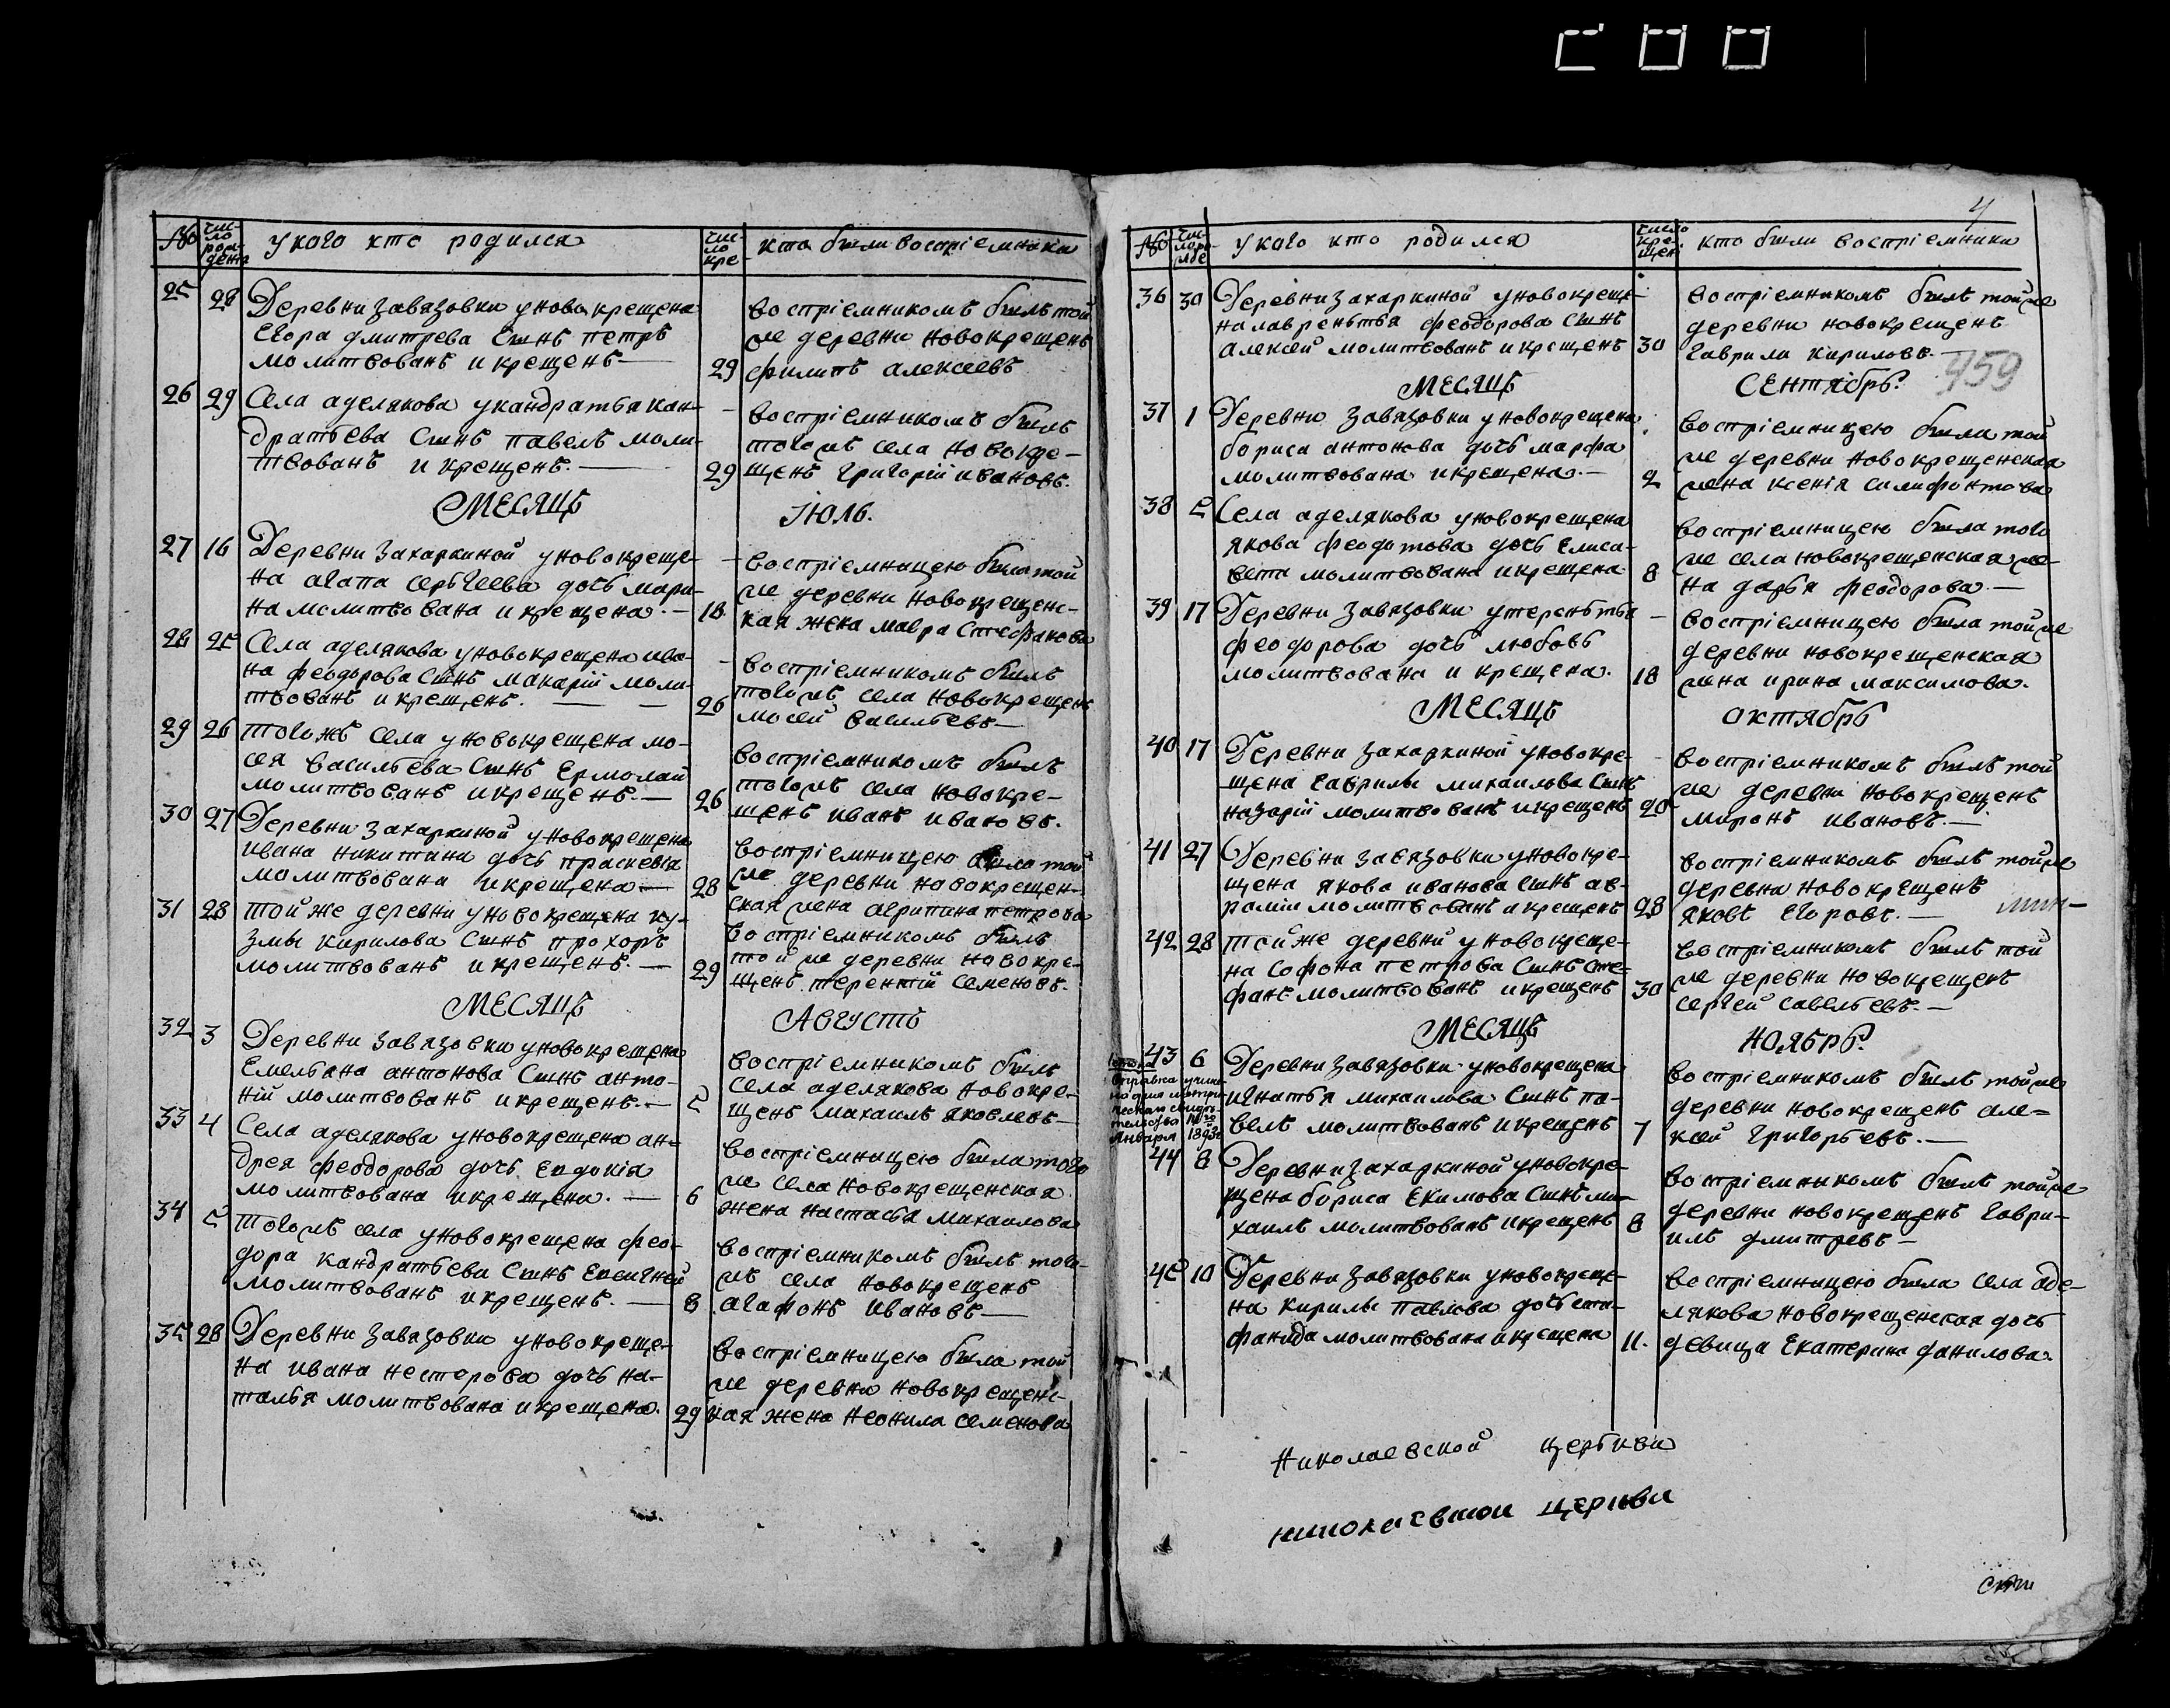 №
чи-
сло
рож-
дения
у кого кто родился
чи-
сло
кре
кто были востріемники
25 28 Деревни завязовки у новокрещена
Егора дмитрева сынъ петръ
молитвованъ и крещенъ—
29
востріемникомъ былъ той
же деревни новокрещенъ
филипъ алексеевъ
26 29 Села аделякова у кандратья кан-
дратьева сынъ павелъ моли-
твованъ и крещенъ.—
29
востріемникомъ былъ
тогожъ села новокре-
щенъ григорій ивановъ.
МЕСЯЦЪ Июль.
27 16 Деревни захаркиной у новокреще-
на агапа сергеева дочь мари-
на молитвована и крещена.—
18
востріемницею была той
же деревни новокрещенс-
кая жена мавра стефанова
28 25 Села аделякова у новокрещена ива-
на феодорова сынъ макарій моли-
твованъ и крещенъ.—
26
востріемникомъ былъ
тогожъ села новокрещенъ
мосей васильевъ—
29 26 тогожъ села у новокрещена мо-
сея васильева сынъ Ермолай
молитвованъ и крещенъ.—
26
востріемникомъ былъ
тогожъ села новокре-
щенъ иванъ ивановъ.
30 27 Деревни захаркиной у новокрещена
ивана никитина дочь праскевія
молитвована и крещена—
28
востріемницею была той
же деревни новокрещен-
ская жена агрипина петрова
31 28 той же деревни у новокрещена ку-
змы кирилова сынъ прохоръ
молитвованъ и крещенъ.—
29
востріемникомъ былъ
той же деревни новокре-
щенъ терентій семеновъ.
МЕСЯЦЪ Августъ
32 3 Деревни завязовки у новокрещена
Емельяна антонова сынъ анто-
ній молитвованъ и крещенъ.—
5
востріемникомъ былъ
села аделякова новокре-
щенъ михаилъ яковлевъ—
33 4 Села аделякова у новокрещена ан-
дрея феодорова дочь Евдокія
молитвована и крещена.—
6
востріемницею была того
же села новокрещенская
жена настасья михаилова
34 5 тогожъ села у новокрещена фео-
дора кандратьева сынъ Евсигней
молитвованъ и крещенъ.—
8
востріемникомъ былъ того-
жъ села новокрещенъ
агафонъ ивановъ—
35 28 Деревни завязовки у новокреще-
на ивана нестерова дочь на-
талья молитвована и крещена.
29
востріемницею была той
же деревни новокрещенс-
кая жена неонила семенова
4
№
чи-
слоро-
жде
у кого кто родился
число
кре-
щен.
кто были востріемники
36 30 Деревни захаркиной у новокреще-
на лаврентья феодорова сынъ
алексей молитвованъ и крещенъ
30
востріемникомъ былъ тойже
деревни новокрещенъ
гаврила кириловъ.—
459
МЕСЯЦЪ СЕнтябрь.
37 1 Деревни завязовки у новокрещена
бориса антонова дочь марфа
молитвована и крещена.—
2
востріемницею была той
же деревни новокрещенская
жена ксенія силифонтова
38 5 Села аделякова у новокрещена
якова феодотова дочь Елиса-
вета молитвована и крещена
8
востріемницею была того
же села новокрещенская же-
на дарья феодорова.—
39 17 Деревни завязовки у терентья
феодорова дочь любовь
молитвована и крещена.
18
востріемницею была тойже
деревни новокрещенская
жена ирина максимова.
МЕСЯЦЪ октябрь
40 17 Деревни захаркиной у новокре-
щена гаврилы михаилова сынъ
назарій молитвованъ и крещенъ
20
востріемникомъ былъ той
же деревни новокрещенъ
миронъ ивановъ.—
41 27 Деревни завязовки у новокре-
щена якова иванова сынъ ав-
рамій молитвованъ и крещенъ
28
востріемникомъ былъ тойже
деревни новокрещенъ
яковъ Егоровъ.—
42 28 той же деревни у новокреще-
на софона петрова сынъ сте-
фанъ молитвованъ и крещенъ
30
востріемникомъ былъ той
же деревни новокрещенъ
сергей савельевъ.—
МЕСЯЦЪ ноябрь.
43 6 Деревни завязовки у новокрещена
игнатья михаилова сынъ па-
велъ молитвованъ и крещенъ
7
востріемникомъ былъ тойже
деревни новокрещенъ але=
ксей григорьевъ.—
справка учине-
на для метри-
ческаго свидѣ-
тельства
Января 1893г
44 8 Деревни захаркиной у новокре-
щена бориса Екимова сынъ ми-
хаилъ молитвованъ и крещенъ
8
востріемникомъ былъ тойже
деревни новокрещенъ гаври-
илъ дмитревъ—
45 10 Деревни завязовки у новокреще-
на кирилы павлова дочь сте-
фанида молитвована и крещена
11.
востріемницею была села аде-
лякова новокрещенская дочь
девица Екатерина данилова.
николаевской церькви
николаевской церькви